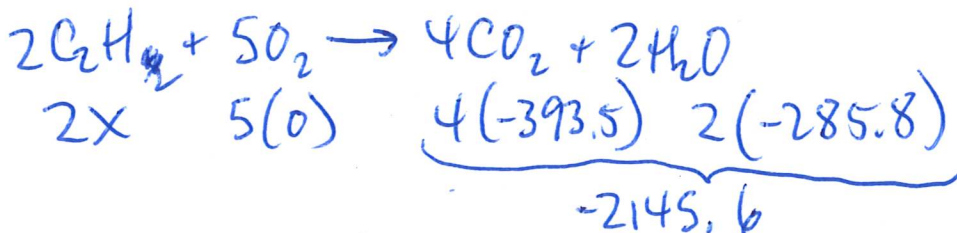 2C₂H₂ + 5O₂ → 4CO₂ + 2H₂O
2x 5(0) 4(-393.5) 2(-285.8)
-2145.6